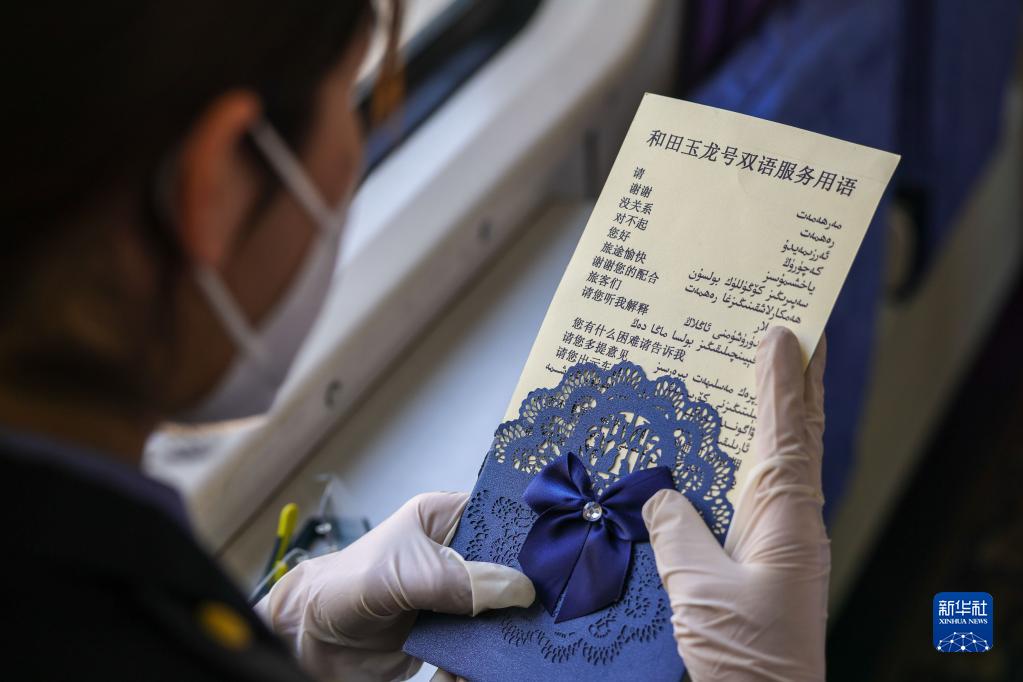 和田玉龙号双语服务用语
请
谢谢
没关系
对不起
您好
旅途愉快
谢谢您的配合
旅客们
请您听我解释
您有什么困难请告诉我
请您多提意见
请您出示车
مەرھەمەت
رەھمەت
ئەرزىمەيدۇ
كەچۈرۈڭ
ياخشىمۇسىز
سەپىرىڭىز كۆڭۈللۈك بولسۇن
ھەمكارلاشقىنىڭىزغا رەھمەت
新华社
XINHUA NEWS